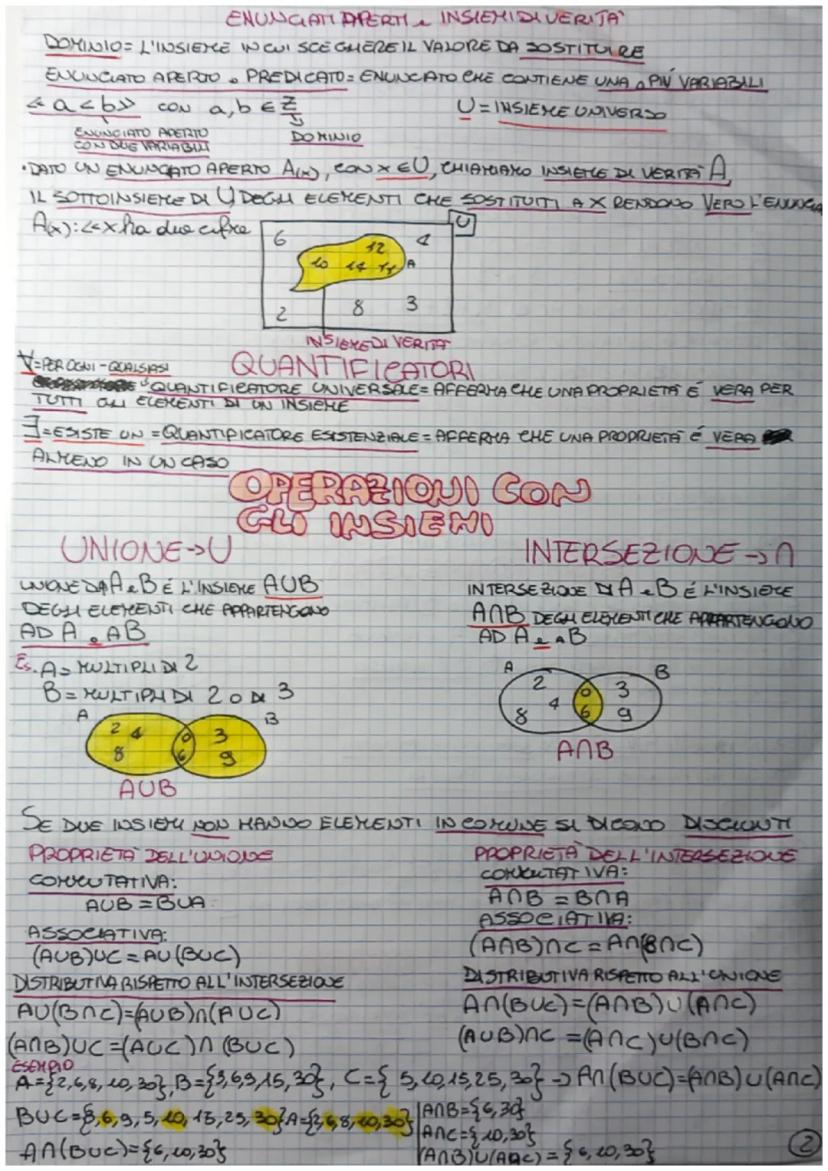 ENUNCIATI APERTI e INSIEMI DI VERITA'
DOMINIO = L'INSIEME IN CUI SCEGLIERE IL VALORE DA SOSTITUIRE
ENUNCIATO APERTO o PREDICATO = ENUNCIATO CHE CONTIENE UNA o PIÙ VARIABILI
<< a < b >> con a, b ∈ Z
U = INSIEME UNIVERSO
ENUNCIATO APERTO CON DUE VARIABILI
DOMINIO
• DATO UN ENUNCIATO APERTO A(x), CON x ∈ U, CHIAMIAMO INSIEME DI VERITA' A,
IL SOTTOINSIEME DI U DEGLI ELEMENTI CHE SOSTITUITI A X RENDONO VERO L'ENUNCIA
A(x): << x ha due cifre
U
6 12 4
10 14 11 A
2 8 3
INSIEME DI VERITA'
QUANTIFICATORI
∀ = PER OGNI - QUALSIASI
QUANTIFICATORE UNIVERSALE = AFFERMA CHE UNA PROPRIETÀ É VERA PER
TUTTI GLI ELEMENTI DI UN INSIEME
∃ = ESISTE UN = QUANTIFICATORE ESISTENZIALE = AFFERMA CHE UNA PROPRIETÀ É VERA
ALMENO IN UN CASO
OPERAZIONI CON
GLI INSIEMI
UNIONE -> U
UNIONE DA A e B É L'INSIEME A∪B
DEGLI ELEMENTI CHE APPARTENGONO
AD A o A B
Es. A = MULTIPLI DI 2
B = MULTIPLI DI 2 O DI 3
A B
2 4 0 3
8 6 9
A∪B
INTERSEZIONE -> ∩
INTERSEZIONE DI A e B É L'INSIEME
A∩B DEGLI ELEMENTI CHE APPARTENGONO
AD A e A B
A B
2 0 3
4
8 6 9
A∩B
SE DUE INSIEMI NON HANNO ELEMENTI IN COMUNE SI DICONO DISGIUNTI
PROPRIETA' DELL'UNIONE
COMMUTATIVA:
A∪B = B∪A
ASSOCIATIVA:
(A∪B)∪C = A∪(B∪C)
DISTRIBUTIVA RISPETTO ALL'INTERSEZIONE
A∪(B∩C) = (A∪B)∩(A∪C)
(A∩B)∪C = (A∪C)∩(B∪C)
PROPRIETA' DELL'INTERSEZIONE
COMMUTATIVA:
A∩B = B∩A
ASSOCIATIVA:
(A∩B)∩C = A∩(B∩C)
DISTRIBUTIVA RISPETTO ALL'UNIONE
A∩(B∪C) = (A∩B)∪(A∩C)
(A∪B)∩C = (A∩C)∪(B∩C)
ESEMPIO
A = {2,6,8,10,30}, B = {3,6,9,15,30}, C = { 5,10,15,25,30} -> A∩(B∪C) = (A∩B)∪(A∩C)
B∪C = {3,6,9,5,10,15,25,30} A = {2,6,8,10,30}
A∩(B∪C) = {6,10,30}
A∩B = {6,30}
A∩C = {10,30}
(A∩B)∪(A∩C) = {6,10,30}
2